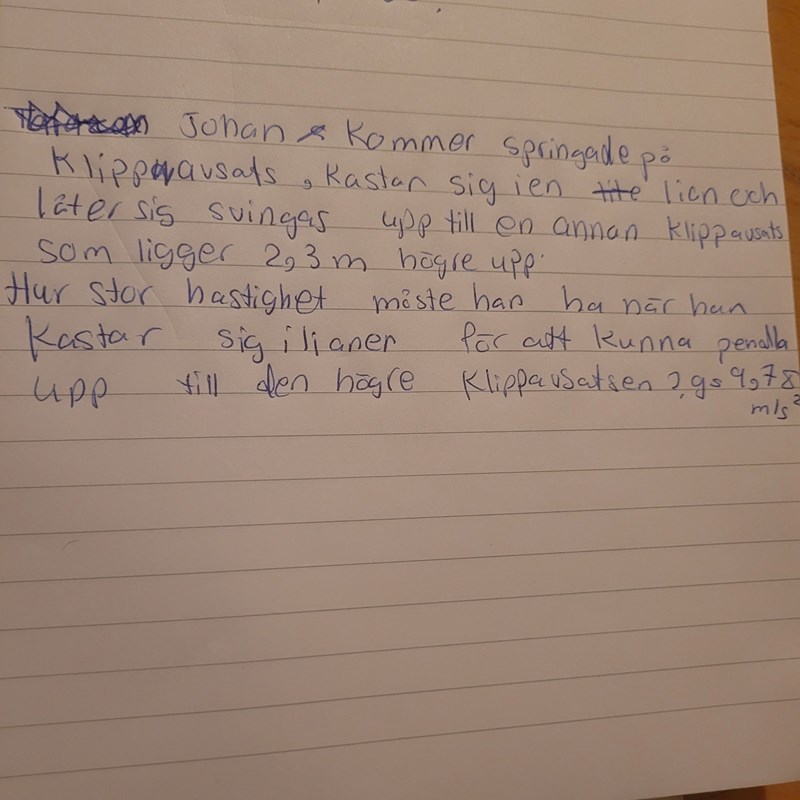 Johan Kommer springade på
Klippavsats, Kastar sig i en lian och
låter sig svingas upp till en annan Klippavsats
som ligger 2,3 m högre upp.
Hur stor hastighet måste han ha när han
Kastar sig i lianen för att kunna pendla
upp till den högre Klippavsatsen? g=9,78
m/s²